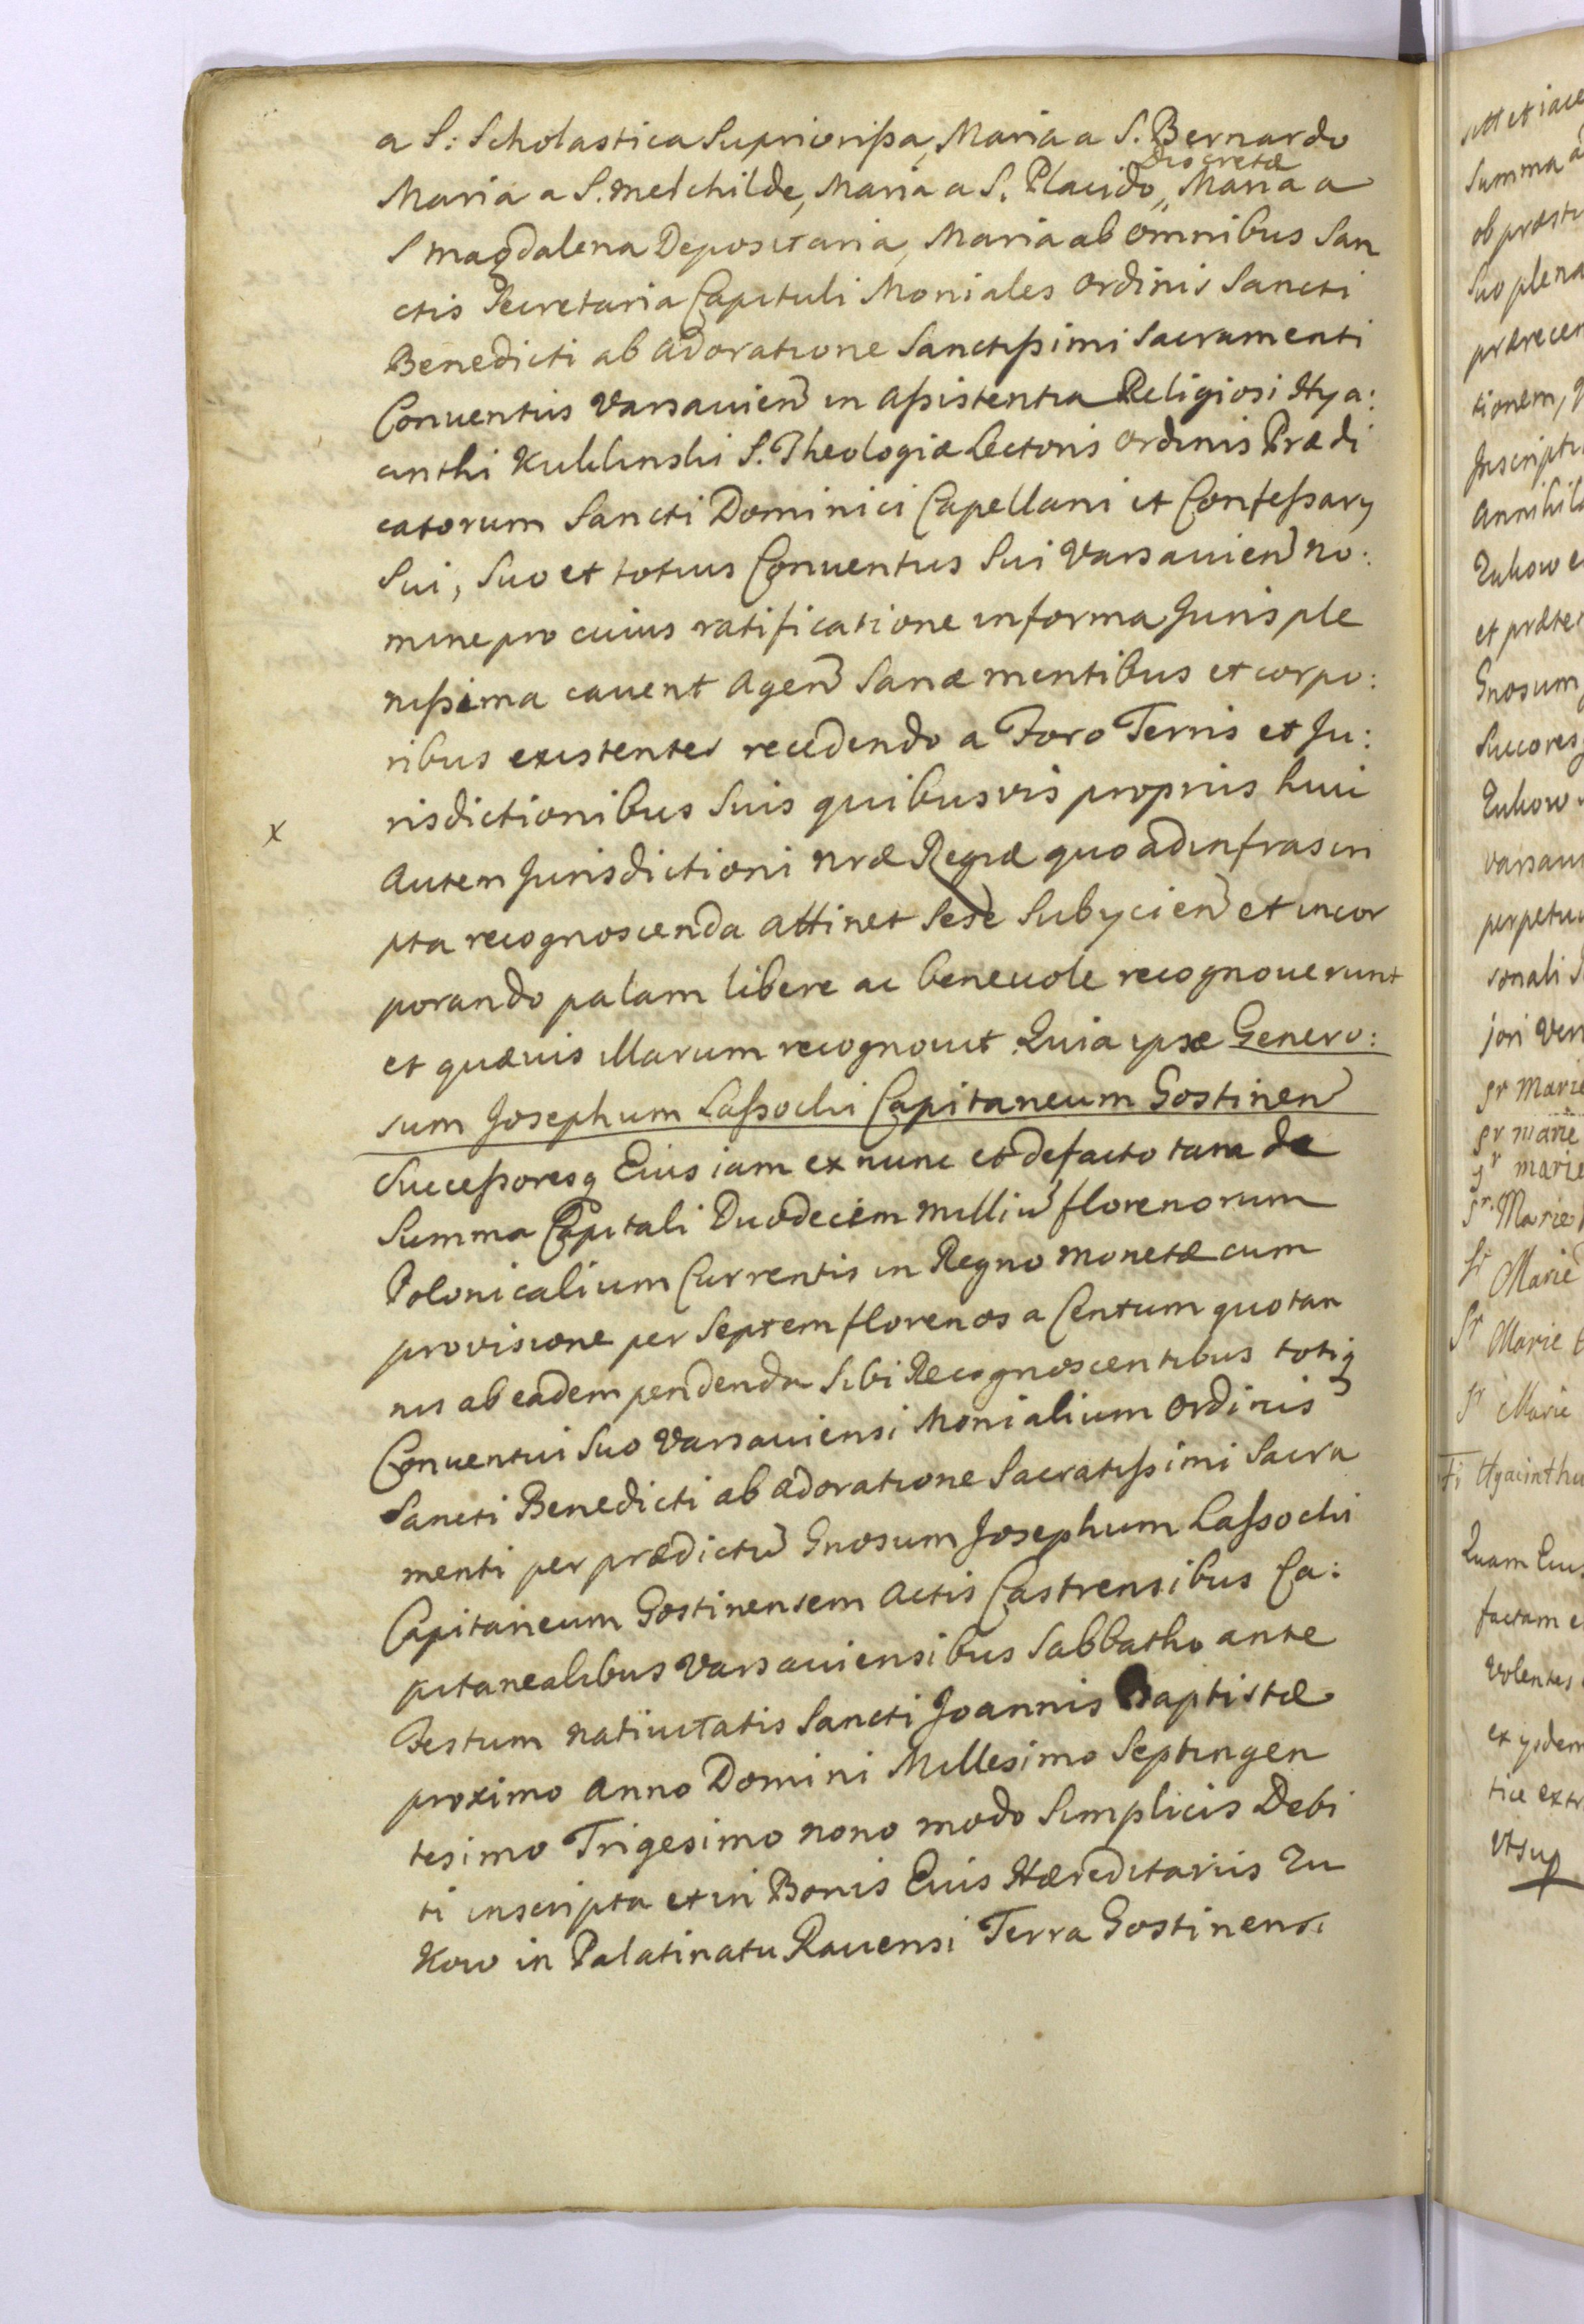 a S: Scholastica Supriorißa, Maria a S. Bernardo
Discretæ
Maria a S. Metchilde, Maria a S. Placido,, Maria a
S Magdalena Depositaria, Maria ab Omnibus San
ctis Secretaria Capituli Moniales Ordinis Sancti
Benedicti ab Adoratione Sanctißimi Sacramenti
Conventus Varsavien in Aßistentia Religiosi Hya:
cinthi S. Theologiæ Lectoris Ordinis Prædi
catorum Sancti Dominici Capellani et Confeßary
Sui, Suo et totius Conventus Sui Varsavien no:
mine pro cuius ratificatione in forma Juris ple
nißima cavent Agen Sanæ mentibus et corpo:
ribus existentes recedendo a Foro Terris et Ju:
risdictionibus Suis quibusvis proprijs huic
x
Autem Jurisdictioni nræ Regiæ quo ad infrascri
pta recognoscenda attinet Sese Subycien et incor
porando palam libere ac benevole recognoverunt
et quævis illarum recognovit. Quia ipsæ Genero:
sum Josephum Laßocki Capitaneum Gostinen
Succeßoresq Eius iam ex nunc et de facto tam de
Summa Capitali Duodecim milliu florenorum
Polonicalium Currentis in Regno monetæ cum
provisione per Septem florenos a Centum quotan
nis ab eadem pendenda Sibi Recognoscentibus totiq
Conventui Suo Varsaviensi Monialium Ordinis
Sancti Benedicti ab Adoratione Sacratißimi Sacra
menti per prædictu Gnosum Josephum Laßocki
Capitaneum Gostinensem Actis Castrensibus Ca:
pitanealibus Varsaviensibus Sabbatho ante
Festum Nativitatis Sancti Joannis Baptistæ
proximo Anno Domini Millesimo Septingen
tesimo Trigesimo nono modo Simplicis Debi
ti inscripta et in Bonis Eius Hæreditariis Zu
kow in Palatinatu Ravensi Terra Gostinensi
Summa
ob præsti
Suo plena
tionem,
Inscripti
Annihil
Zukow e
et præter
Gnosum
Succores
Zukow
varsavi
perpetu
sonali
jori Ven
Sr Marie
Sr Marie
Sr Marie
Sr. Marie
Sr Marie
Sr Marie
Sr Marie
Fr Hyacinthu
Quam Eius
factam e
Volentes
ex ysdem
tice extr
Vt Sup